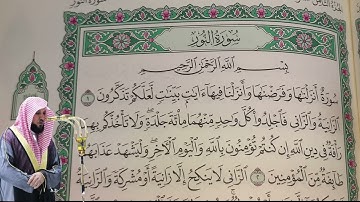 سُورَةُ النُّورِ
بِسْمِ اللَّهِ الرَّحْمَٰنِ الرَّحِيمِ
سُورَةٌ أَنزَلْنَاهَا وَفَرَضْنَاهَا وَأَنزَلْنَا فِيهَا ءَايَاتٍ بَيِّنَاتٍ لَّعَلَّكُمْ تَذَكَّرُونَ ١
الزَّانِيَةُ وَالزَّانِي فَاجْلِدُوا كُلَّ وَاحِدٍ مِّنْهُمَا مِائَةَ جَلْدَةٍ وَلَا تَأْخُذْكُم بِهِمَا
رَأْفَةٌ فِي دِينِ اللَّهِ إِن كُنتُمْ تُؤْمِنُونَ بِاللَّهِ وَالْيَوْمِ الْآخِرِ وَلْيَشْهَدْ عَذَابَهُمَا
طَائِفَةٌ مِّنَ الْمُؤْمِنِينَ ٢ الزَّانِي لَا يَنكِحُ إِلَّا زَانِيَةً أَوْ مُشْرِكَةً وَالزَّانِيَةُ